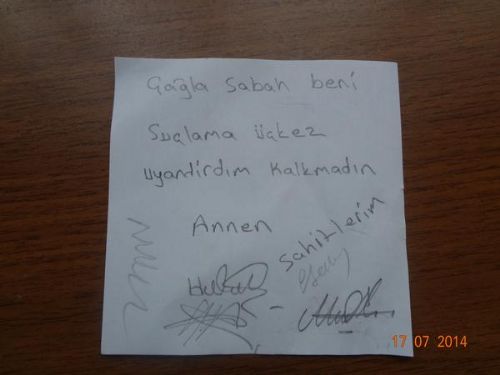 Çağla sabah beni
Suçlama üçkez
uyandirdım kalkmadın
Annen
Şahitlerim
17 07 2014